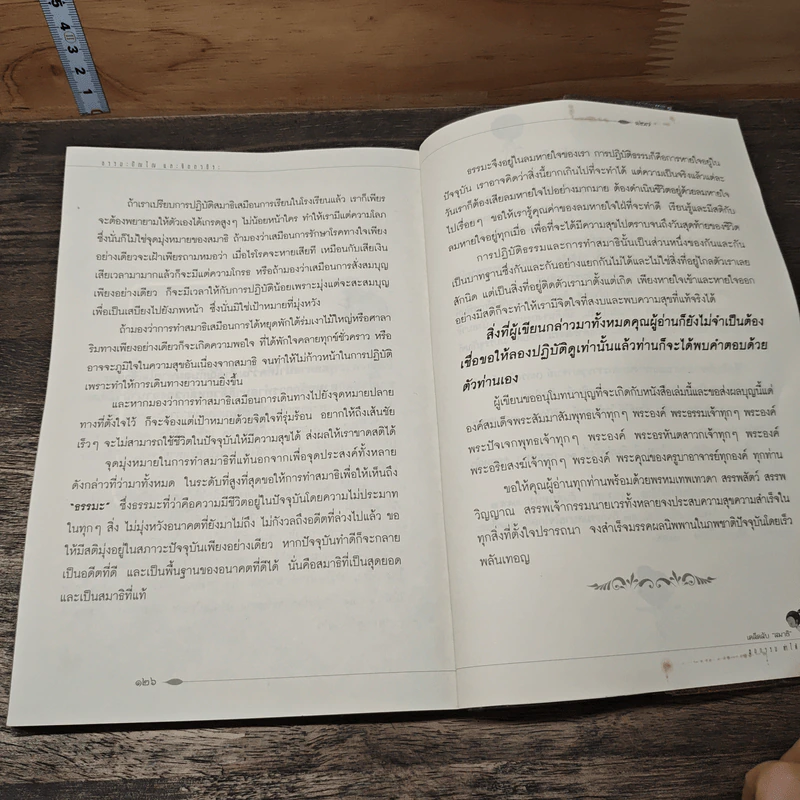 5 4 3 2 1
ถ้าเราเปรียบการปฏิบัติสมาธิเสมือนการเรียนในโรงเรียนแล้ว เราก็เพียร
จะต้องพยายามให้ตัวเองได้เกรดสูงๆ ไม่น้อยหน้าใคร ทำให้เรามีแต่ความโลภ
ซึ่งนั่นก็ไม่ใช่จุดมุ่งหมายของสมาธิ ถ้ามองว่าเสมือนการรักษาโรคทางใจเพียง
อย่างเดียวก็จะเฝ้าเพียรถามหมอว่า เมื่อไรโรคจะหายเสียที เหมือนกับเสียเงิน
เสียเวลามามากแล้วก็จะมีแต่ความโกรธ หรือถ้ามองว่าเสมือนการสั่งสมบุญ
เพียงอย่างเดียว ก็จะมีเวลาให้กับการปฏิบัติน้อยเพราะมุ่งแต่จะสะสมบุญ
เพื่อเป็นเสบียงไปยังภพหน้า ซึ่งนั่นมิใช่เป้าหมายที่มุ่งหวัง
ถ้ามองว่าการทำสมาธิเสมือนการได้หยุดพักใต้ร่มเงาไม้ใหญ่หรือศาลา
ริมทางเพียงอย่างเดียวก็จะเกิดความพอใจ ที่ได้พักใจคลายทุกข์ชั่วคราว หรือ
อาจจะภูมิใจในความสุขอันเนื่องจากสมาธิ จนทำให้ไม่ก้าวหน้าในการปฏิบัติ
เพราะทำให้การเดินทางยาวนานยิ่งขึ้น
และหากมองว่าการทำสมาธิเสมือนการเดินทางไปยังจุดหมายปลาย
ทางที่ตั้งใจไว้ ก็จะจ้องแต่เป้าหมายด้วยจิตใจที่รุ่มร้อน อยากให้ถึงเส้นชัย
เร็วๆ จะไม่สามารถใช้ชีวิตในปัจจุบันให้มีความสุขได้ ส่งผลให้เราขาดสติได้
จุดมุ่งหมายในการทำสมาธิที่แท้นอกจากเพื่อจุดประสงค์ทั้งหลาย
ดังกล่าวที่ว่ามาทั้งหมด ในระดับที่สูงที่สุดขอให้การทำสมาธิเพื่อให้เห็นถึง
"ธรรมะ" ซึ่งธรรมะที่ว่าคือความมีชีวิตอยู่ในปัจจุบันโดยความไม่ประมาท
ในทุกๆ สิ่ง ไม่มุ่งหวังอนาคตที่ยังมาไม่ถึง ไม่กังวลถึงอดีตที่ล่วงไปแล้ว ขอ
ให้มีสติมุ่งอยู่ในสภาวะปัจจุบันเพียงอย่างเดียว หากปัจจุบันทำดีก็จะกลาย
เป็นอดีตที่ดี และเป็นพื้นฐานของอนาคตที่ดีได้ นั่นคือสมาธิที่เป็นสุดยอด
และเป็นสมาธิที่แท้
๑๒๖
๑๒๗
ธรรมะจึงอยู่ในลมหายใจของเรา การปฏิบัติธรรมก็คือการหายใจอยู่ใน
ปัจจุบัน เราอาจคิดว่าสิ่งนี้ยากเกินไปที่จะทำได้ แต่ความเป็นจริงแล้วแต่ละ
วันเราก็ต้องเสียลมหายใจไปอย่างมากมาย ต้องดำเนินชีวิตอยู่ด้วยลมหายใจ
ไปเรื่อยๆ ขอให้เรารู้คุณค่าของลมหายใจไม้ที่จะทำดี เรียนรู้และมีสติกับ
ลมหายใจอยู่ทุกเมื่อ เพื่อที่จะได้มีความสุขไปตราบจนถึงวันสุดท้ายของชีวิต
การปฏิบัติธรรมและการทำสมาธินั้นเป็นส่วนหนึ่งของกันและกัน
เป็นบาทฐานซึ่งกันและกันอย่างแยกกันไม่ได้และไม่ใช่สิ่งที่อยู่ไกลตัวเราเลย
สักนิด แต่เป็นสิ่งที่อยู่ติดตัวเรามาตั้งแต่เกิด เพียงหายใจเข้าและหายใจออก
อย่างมีสติก็จะทำให้เรามีจิตใจที่สงบและพบความสุขที่แท้จริงได้
สิ่งที่ผู้เขียนกล่าวมาทั้งหมดคุณผู้อ่านก็ยังไม่จำเป็นต้อง
เชื่อขอให้ลองปฏิบัติดูเท่านั้นแล้วท่านก็จะได้พบคำตอบด้วย
ตัวท่านเอง
ผู้เขียนขออนุโมทนาบุญที่จะเกิดกับหนังสือเล่มนี้และขอส่งผลบุญนี้แด่
องค์สมเด็จพระสัมมาสัมพุทธเจ้าทุกๆ พระองค์ พระธรรมเจ้าทุกๆ พระองค์
พระปัจเจกพุทธเจ้าทุกๆ พระองค์ พระอรหันตสาวกเจ้าทุกๆ พระองค์
พระอริยสงฆ์เจ้าทุกๆ พระองค์ พระคุณของครูบาอาจารย์ทุกองค์ ทุกท่าน
ขอให้คุณผู้อ่านทุกท่านพร้อมด้วยพรหมเทพเทวดา สรรพสัตว์ สรรพ
วิญญาณ สรรพเจ้ากรรมนายเวรทั้งหลายจงประสบความสุขความสำเร็จใน
ทุกสิ่งที่ตั้งใจปรารถนา จงสำเร็จมรรคผลนิพพานในภพชาติปัจจุบันโดยเร็ว
พลันเทอญ
เคล็ดลับ "สมาธิ"